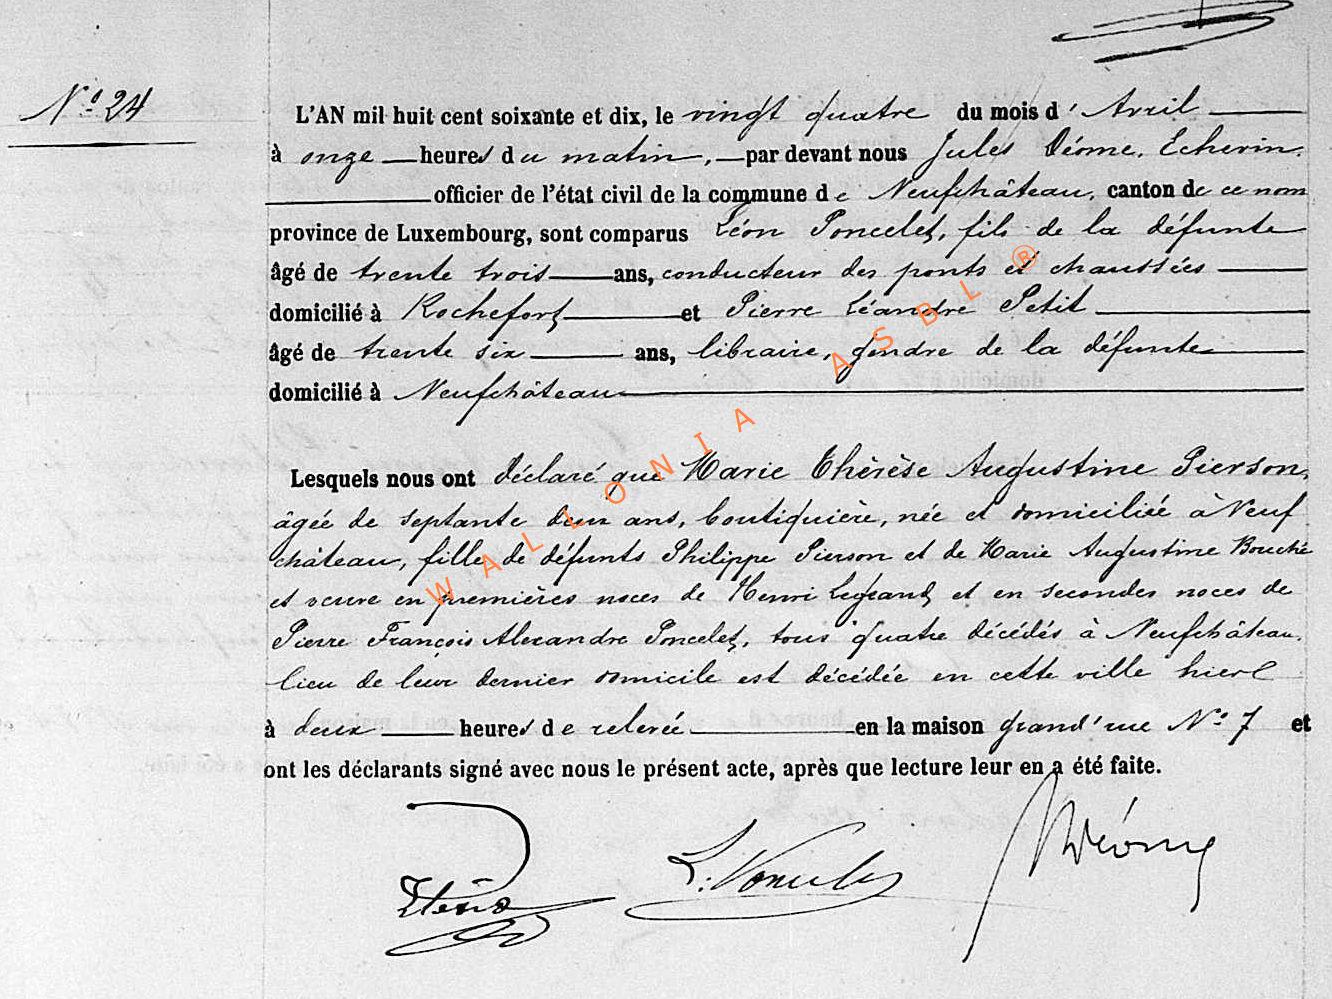 N° 24
L'AN mil huit cent soixante et dix, le vingt quatre du mois d' Avril
à onze heures du matin, par devant nous Jules Déome, Echevin,
officier de l'état civil de la commune de Neufchâteau, canton de ce nom
province de Luxembourg, sont comparus Léon Poncelet, fils de la défunte
âgé de trente trois ans, conducteur des ponts et chaussées
domicilié à Rochefort et Pierre Léandre Petit
âgé de trente six ans, libraire, gendre de la défunte
domicilié à Neufchâteau
Lesquels nous ont déclaré que Marie Thérèse Augustine Pierson,
âgée de septante deux ans, boutiquière, née et domiciliée à Neuf
château, fille de défunts Philippe Pierson et de Marie Augustine Bouché
et veuve en premières noces de Henri Legrand et en secondes noces de
Pierre François Alexandre Poncelet, tous quatre décédés à Neufchâteau,
lieu de leur dernier domicile est décédée en cette ville hier
à deux heures de relevée en la maison grand'rue N° 7 et
ont les déclarants signé avec nous le présent acte, après que lecture leur en a été faite.
L. Poncelet JDéome
WALLONIA ASBL ®